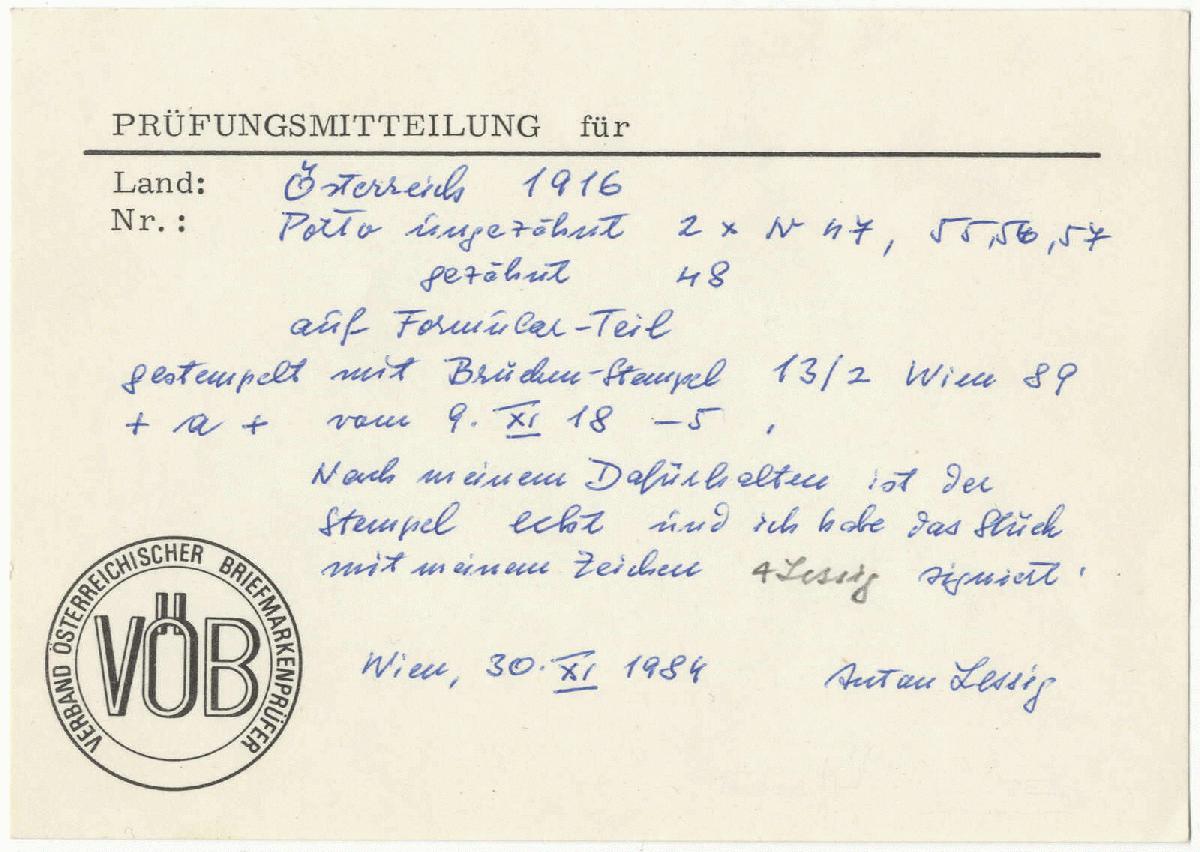 PRÜFUNGSMITTEILUNG für
Land: Österreich 1916
Nr.: Porto ungezähnt 2 x N 47, 55,56,57
gezähnt 48
auf Formular-Teil
gestempelt mit Brücken-Stempel 13/2 Wien 89
+ a + vom 9. XI 18 -5,
Nach meinem Dafürhalten ist der
Stempel echt und ich habe das Stück
mit meinem Zeichen ALessig signiert.
Wien, 30. XI 1984 Anton Lessig
VERBAND ÖSTERREICHISCHER BRIEFMARKENPRÜFER
VÖB